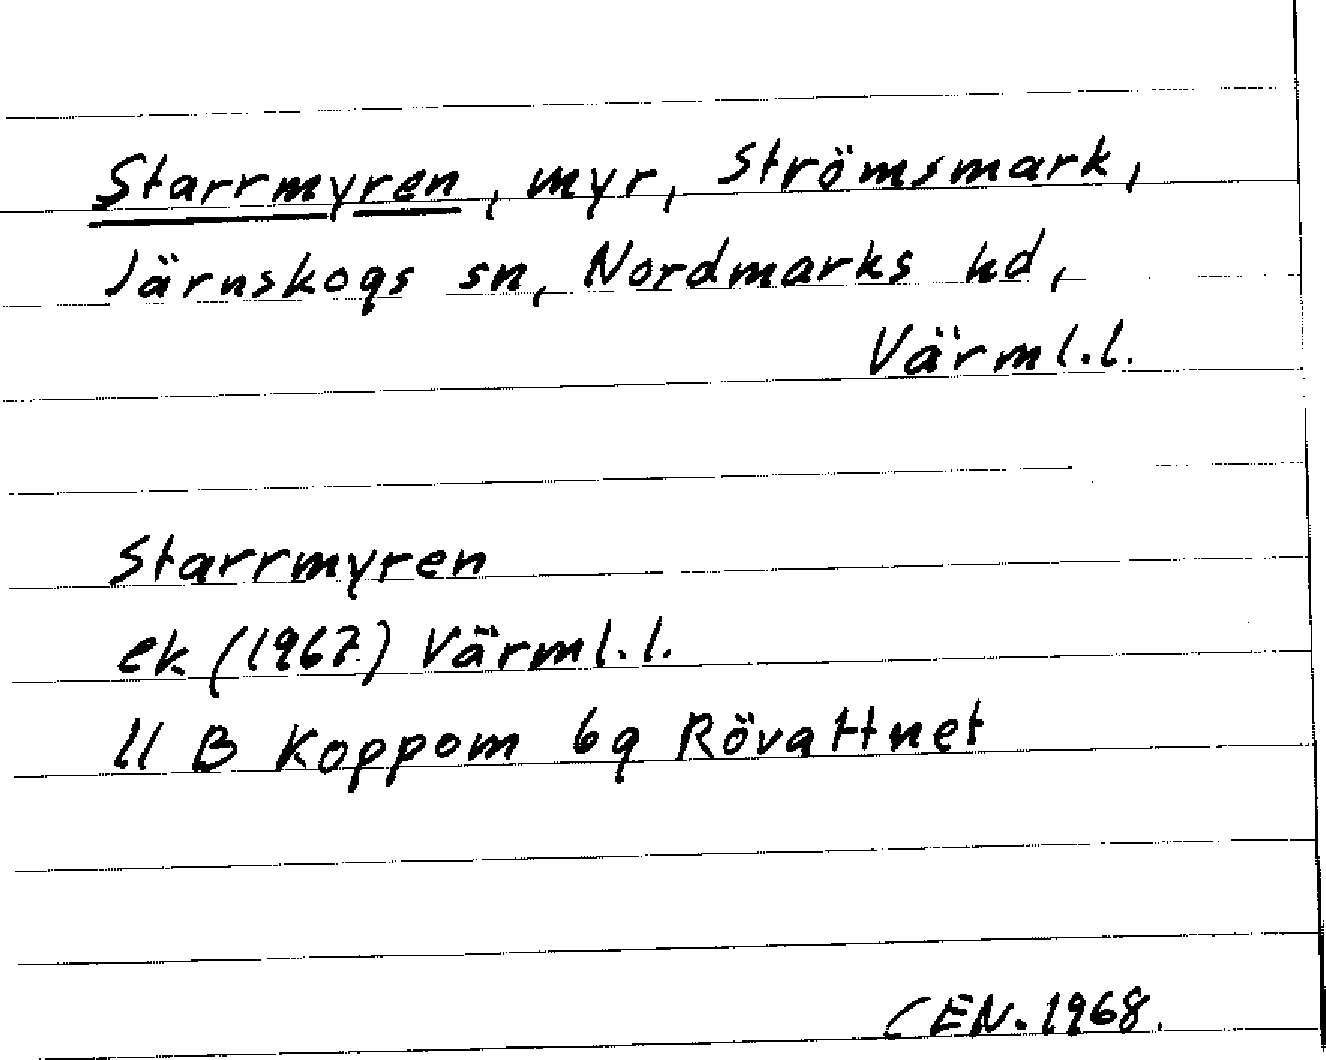 Starrmyren, myr, Strömsmark,
Järnskogs sn, Nordmarks hd,
Värml.l.
Starrmyren
ek (1967) Värml.l.
11 B Koppom 6g Rövattnet
CEN. 1968.